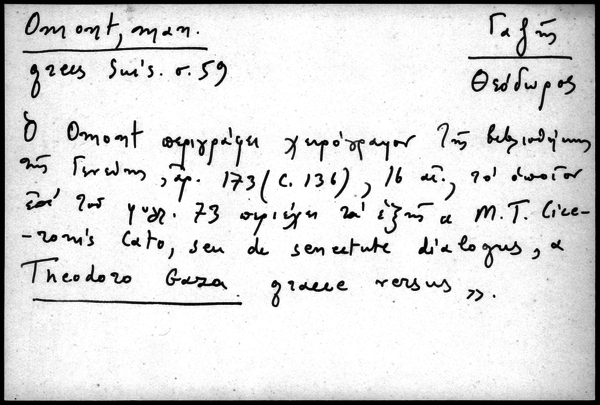 Omont, man.
grecs Suis. σ. 59
Γαζῆς
Θεόδωρος
Ὁ Omont περιγράφει χειρόγραφον τῆς βιβλιοθήκης
τῆς Γενεύης, ἀρ. 173 (C. 136), 16 αἰ., τὸ ὁποῖον
ἐπὶ τοῦ φύλλ. 73 περιέχει τὰ ἑξῆς « M. T. Cice-
-ronis Cato, seu de senectute dialogus, a
Theodoro Gaza graece versus ».